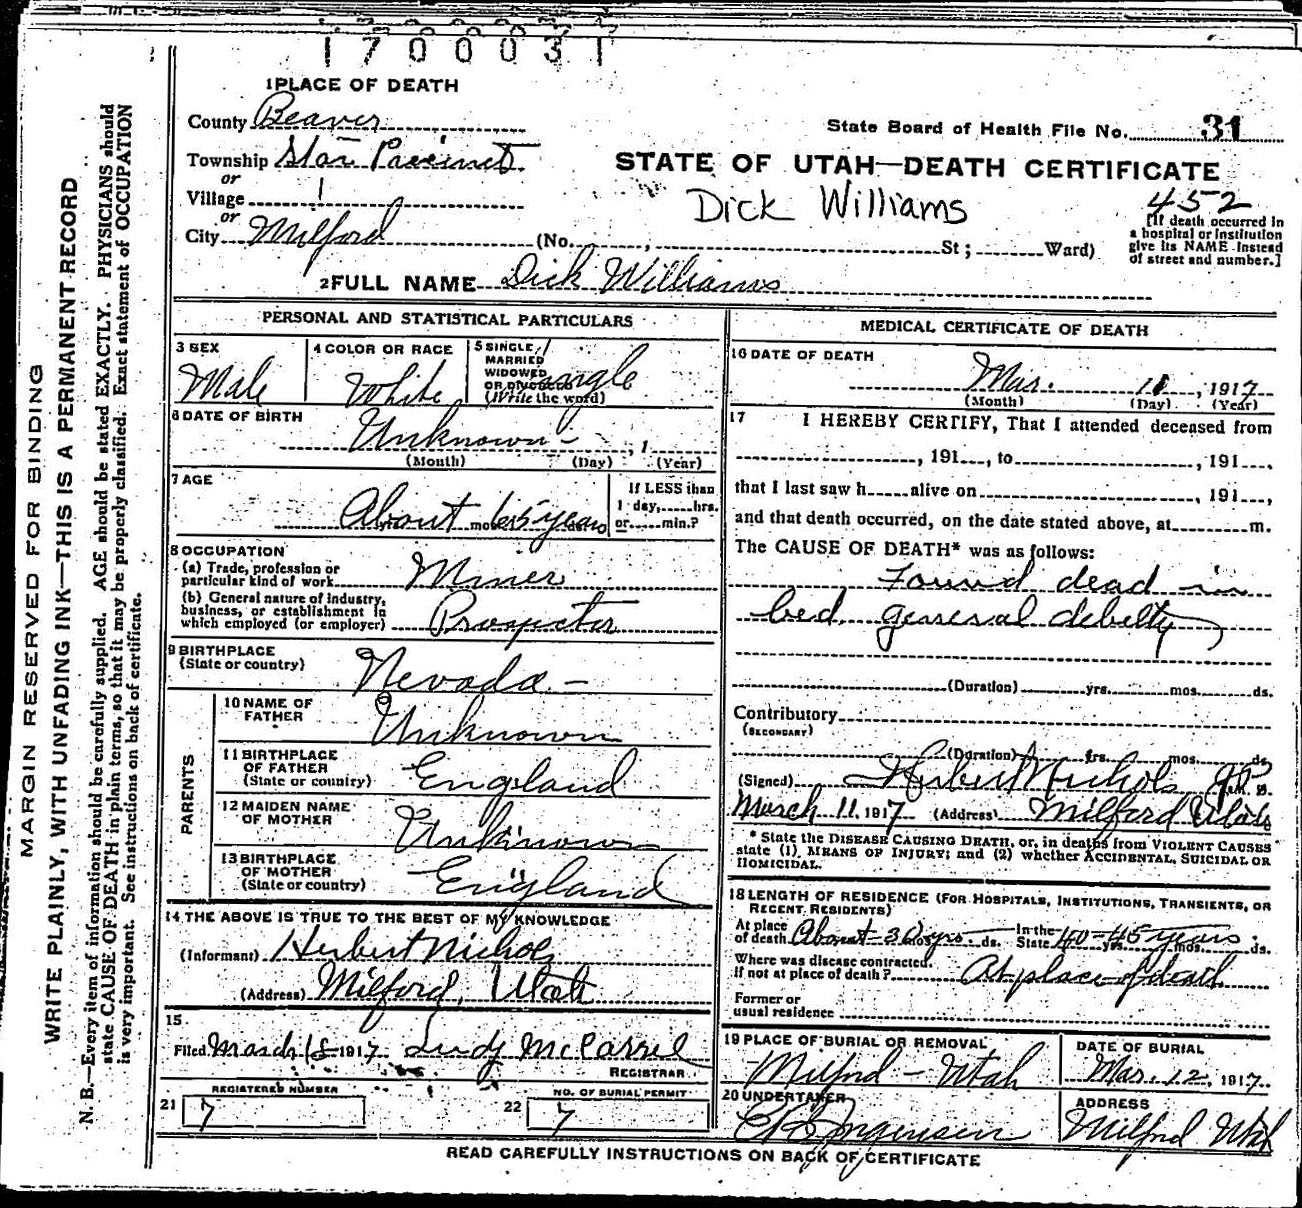 1700031
1 PLACE OF DEATH
County Beaver
State Board of Health File No. 31
Township Star Precinct
STATE OF UTAH—DEATH CERTIFICATE
or
Village
Dick Williams
452
or
City Milford (No. , St; Ward)
[If death occurred in
a hospital or institution
give its NAME instead
of street and number.]
2 FULL NAME Dick Williams
PERSONAL AND STATISTICAL PARTICULARS
3 SEX
Male
4 COLOR OR RACE
White
5 SINGLE,
MARRIED
WIDOWED
OR DIVORCED
(Write the word)
Single
6 DATE OF BIRTH
Unknown - , 1
(Month) (Day) (Year)
7 AGE
About 65 years
If LESS than
1 day, hrs.
or min.?
8 OCCUPATION
(a) Trade, profession or
particular kind of work Miner
(b) General nature of industry,
business, or establishment in
which employed (or employer) Prospector
9 BIRTHPLACE
(State or country) Nevada -
PARENTS
10 NAME OF
FATHER
Unknown
11 BIRTHPLACE
OF FATHER
(State or country) England
12 MAIDEN NAME
OF MOTHER
Unknown
13 BIRTHPLACE
OF MOTHER
(State or country) England
14 THE ABOVE IS TRUE TO THE BEST OF MY KNOWLEDGE
(Informant) Herbert Nichols
(Address) Milford, Utah
15
Filed March 15 1917 Judy McCarrel
REGISTRAR
REGISTERED NUMBER
21 7
NO. OF BURIAL PERMIT
22 7
MEDICAL CERTIFICATE OF DEATH
16 DATE OF DEATH
Mar. 11, 1917
(Month) (Day) (Year)
17 I HEREBY CERTIFY, That I attended deceased from
, 191 , to , 191 ,
that I last saw h alive on , 191 ,
and that death occurred, on the date stated above, at m.
The CAUSE OF DEATH* was as follows:
Found dead in
bed, general debelty
(Duration) yrs. mos. ds.
Contributory
(SECONDARY)
(Duration) yrs. mos. ds.
(Signed) Herbert Nichols J.P. M. D.
March 11, 1917 (Address) Milford Utah
* State the DISEASE CAUSING DEATH, or, in deaths from VIOLENT CAUSES
state (1), MEANS OF INJURY; and (2) whether ACCIDENTAL, SUICIDAL OR
HOMICIDAL.
18 LENGTH OF RESIDENCE (FOR HOSPITALS, INSTITUTIONS, TRANSIENTS, OR
RECENT RESIDENTS)
At place
of death About 30 yrs mos. ds. In the State 40-45 years mos. ds.
Where was disease contracted,
if not at place of death? At place of death
Former or
usual residence
19 PLACE OF BURIAL OR REMOVAL
Milford - Utah
DATE OF BURIAL
Mar. 12, 1917
20 UNDERTAKER
Jorgensen
ADDRESS
Milford Utah
READ CAREFULLY INSTRUCTIONS ON BACK OF CERTIFICATE
MARGIN RESERVED FOR BINDING
WRITE PLAINLY, WITH UNFADING INK—THIS IS A PERMANENT RECORD
N. B.—Every item of information should be carefully supplied. AGE should be stated EXACTLY. PHYSICIANS should
state CAUSE OF DEATH in plain terms, so that it may be properly classified. Exact statement of OCCUPATION
is very important. See instructions on back of certificate.